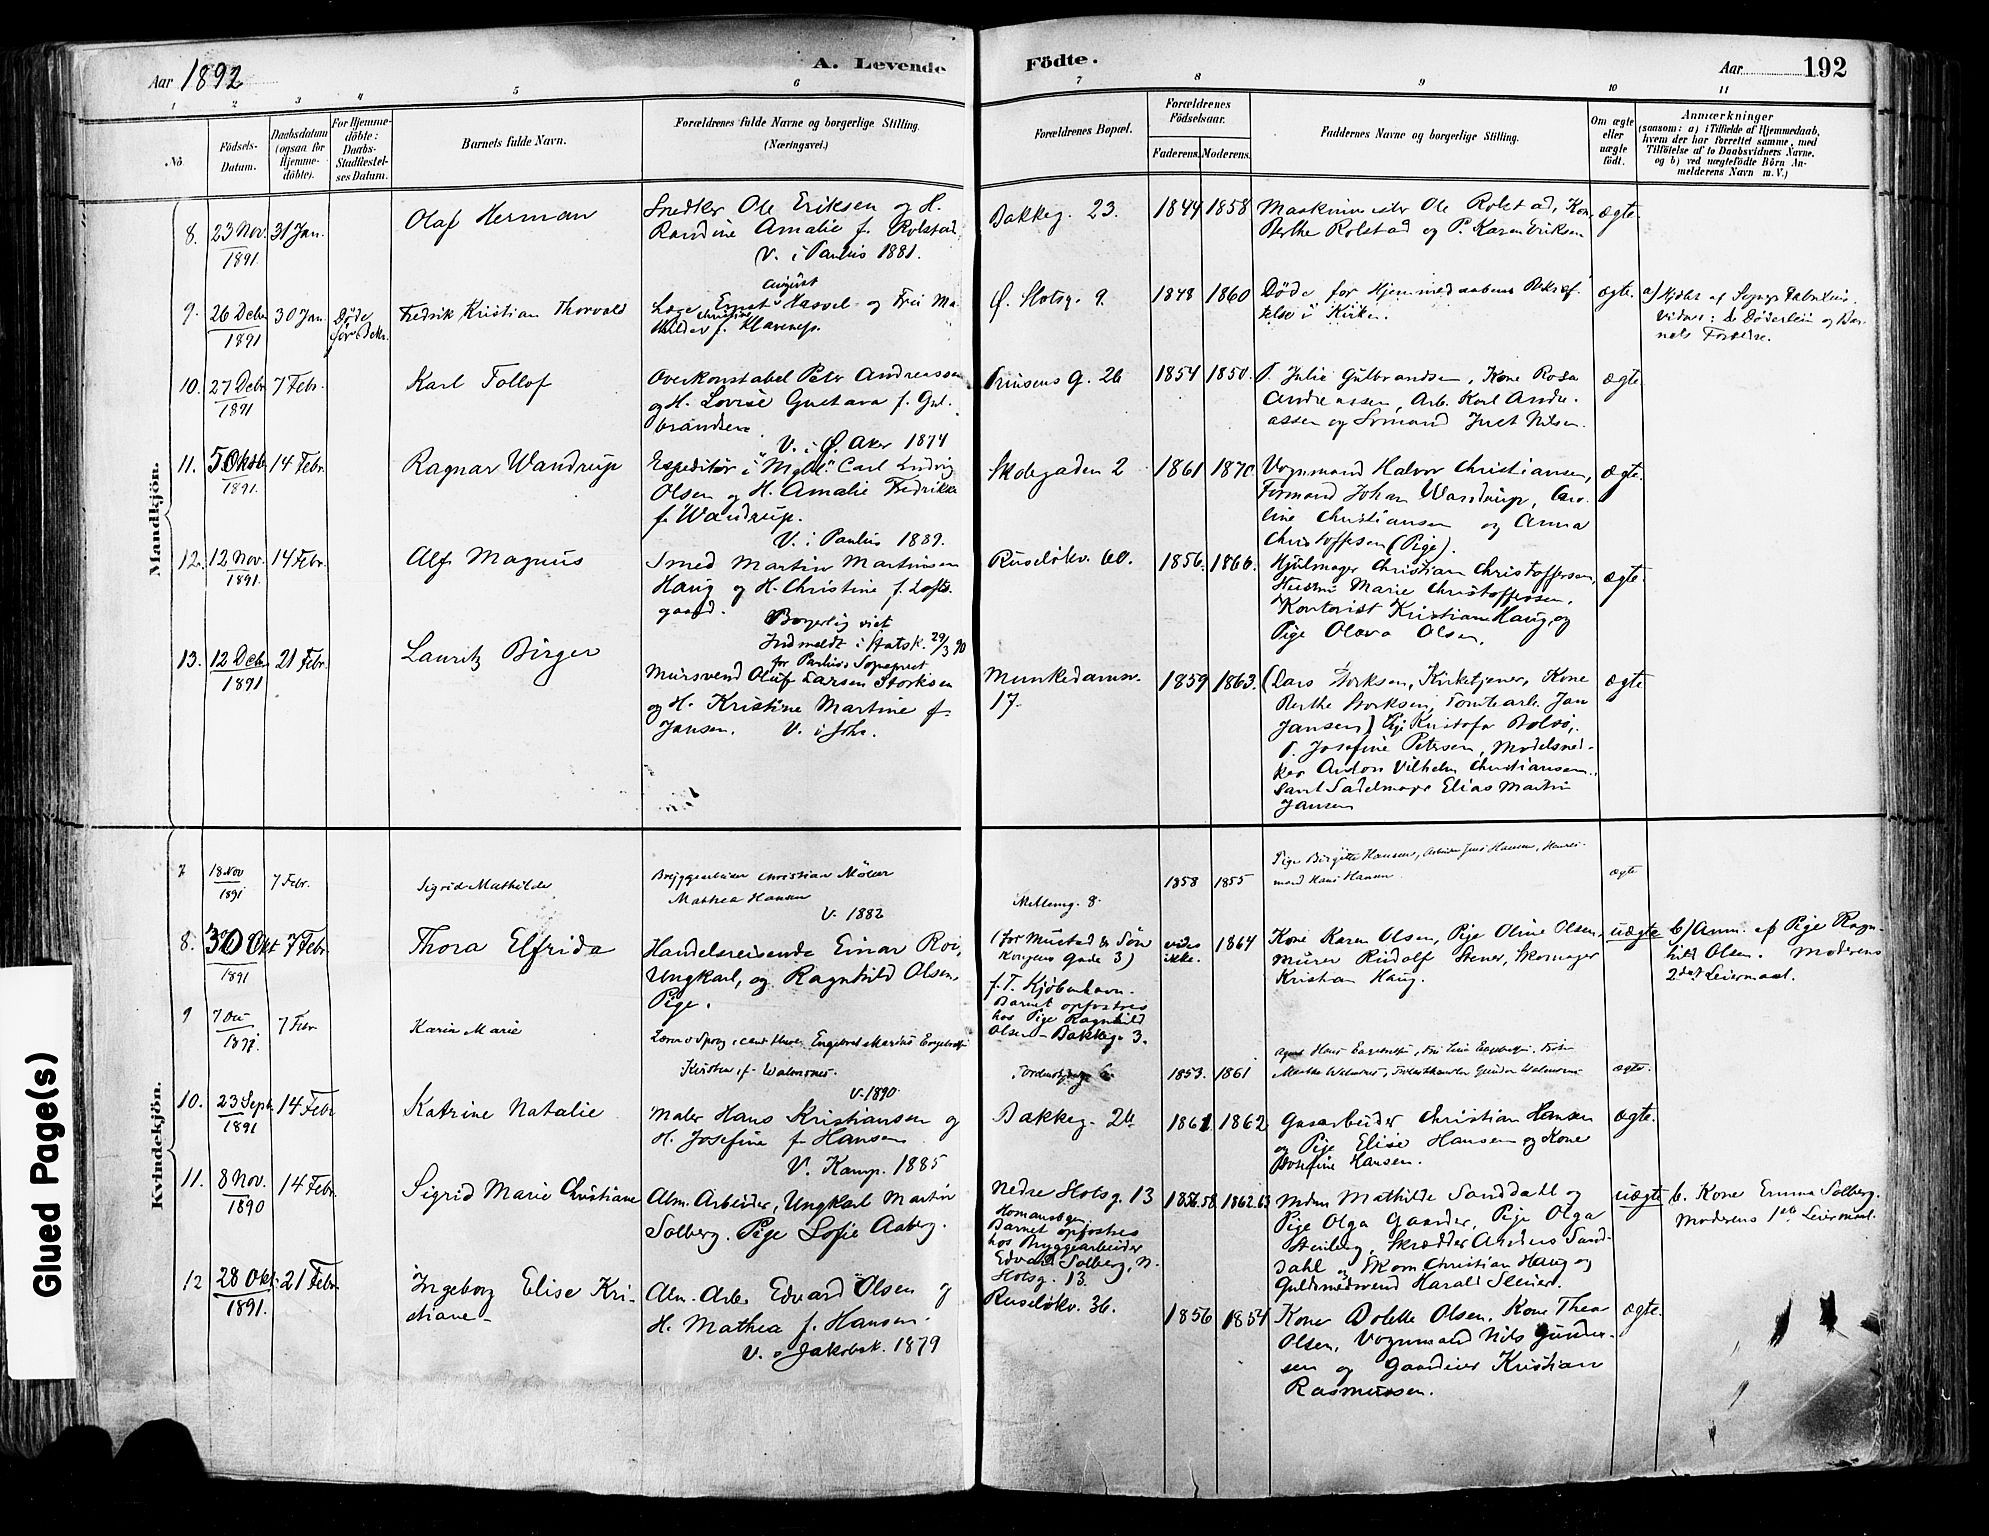 Aar 1892
A. Levende
Födte.
Aar
192
1 2 3 4 5 6 7 8 9 10 11
No.
Födsels-
Datum.
Daabsdatum
(ogsaa for
Hjemme-
döbte).
For Hjemme-
döbte:
Daabs-
Stadfæstel-
ses Datum.
Barnets fulde Navn.
Forældrenes fulde Navne og borgerlige Stilling.
(Næringsvei.)
Forældrenes Bopæl.
Forældrenes
Födselsaar.
Faderens. Moderens.
Faddernes Navne og borgerlige Stilling.
Om ægte
eller
uægte
födt.
Anmærkninger
(saasom: a) i Tilfælde af Hjemmedaab,
hvem der har forrettet samme, med
Tilföielse af to Daabsvidners Navne.
og b) ved uægtefödte Börn An-
melderens Navn m. V.)
Mandkjön.
8. 23 Nov. 1891. 31 Jan.
Olaf Herman
Snedker Ole Eriksen og H.
Randine Amalie f. Rolstad
V. i Paulus 1881.
Bakkeg. 23.
1844 1858
Maskinmester Ole Rolstad, Kone
Berthe Rolstad og P. Karen Eriksen
ægte.
9. 26 Debr 1891 30 Jan.
Døde
før Bekr.
Fredrik Kristian Thorvald
august
Læge Ernst Hassel og Fru Ma-
christine
thilde f. Klavenæs.
Ø. Slotsg. 9.
1848 1860
Døde før Hjemmedaabens Bekræf-
telse i Kirken.
ægte.
a)
Vidner:
Døderlein og Bar-
nets Forældre.
10. 27 Debr 1891 7 Febr.
Karl Tollof
Overkonstabel Peter Andreassen
og H. Lovise Gustava f. Gul-
brandsen.
V. i Ø. Aker 1874
Prinsens G. 26
1854 1850.
P. Julie Gulbrandsen, Kone Rosa
Andreassen, Arb. Karl Andre-
assen og Sømand Just Nilsen.
ægte
11. 5 Oktb 1891. 14 Febr.
Ragnar Wandrup
Expeditør i "Mgbl." Carl Ludvig
Olsen og H. Amalie Fredrikke
f. Wandrup.
V. i Paulus 1889.
Skolegaden 2
1861 1870
Vognmand Halvor Christiansen,
Formand Johan Wandrup, Caro-
line Christiansen og Anna
Christoffesen (Pige).
ægte.
12. 12 Nov. 1891. 14 Febr.
Alf Magnus
Smed Martin Martinsen
Haug og H. Christine f. Lofts-
gaard.
Borgerlig viet
Indmeldt i Statsk. 29/3 90
for Paulus Sogneprest
Ruseløkv. 60.
1856. 1866.
Hjulmager Christian Christoffersen,
Hustru Marie Christoffersen,
Kontorist Kristian Haug, og
Pige Olava Olsen.
ægte.
13. 12 Debr 1891 21 Febr.
Lauritz Birger
Mursvend Oluf Larsen Storksen
og H. Kristine Martine f.
Jansen. V. i Joh.
Munkedamsv.
17.
1859 1863.
(Lars Storksen, Kirketjener, Kone
Berthe Storksen, Tomtearb. Jan
Jansen) Pige Kristofa Bolsø,
P. Josefine Petersen, Modelsned-
ker Anton Vilhelm Christiansen,
samt Sadelmager Elias Martin
Jansen
ægte
Kvindekjön.
7 18 Nov 1891 7 Febr.
Sigrid Mathilde
Bryggearbeider Christian Möller
Mathea Hansen
V. 1882
Mellemg. 8.
1858 1855
Pige Birgitte Hansen, Arbeider Jens Hansen,
mand Hans Hansen
ægte
8. 30 Okt 1891 7 Febr
Thora Elfrida
Handelsreisende Einar Roi,
Ungkarl, og Ragnhild Olsen,
Pige.
(for Mustad & Søn
Kongens Gade 3)
f. T. Kjøbenhavn.
Barnet opfostres
hos Pige Ragnhild
Olsen - Bakkeg. 3.
vides
ikke.
1864
Kone Karen Olsen, Pige Oline Olsen,
Murer Rudolf Stener, Skomager
Kristian Haug.
uægte
b) Anm. af Pige Ragn-
hild Olsen. Moderens
2det Leiermaal.
9 7 7 Febr
Karin Marie
Kristine f. Walmsnes.
V. 1890.
1853. 1861
ægte.
10. 23 Septb 1891 14 Febr
Katrine Natalie
Maler Hans Kristiansen og
H. Josefine f. Hansen
V. Kamp. 1885
Bakkeg. 26
1861 1862
Gasarbeider Christian Hansen
og Pige Elise Hansen og Kone
Josefine Hansen.
ægte.
11. 8 Nov. 1890 14 Febr.
Sigrid Marie Christiane
Alm. Arbeider, Ungkarl Martin
Solberg. Pige Sofie Aaberg.
Nedre Slotsg. 13
Homansbgen
Barnet opfostres
hos Bryggearbeider
Edvard Solberg, N.
Slotsg. 13.
1856.58 1862.63
Mdm Mathilde Sanddahl og
Pige Olga Gaarder, Pige Olga
Stenberg, Skrædder Anders Sand-
dahl og Skom. Christian Haug og
Guldsmedsvend Harald Stener.
uægte
b. Kone Emma Solberg.
Moderens 1ste Leiermaal.
12 28 Okt. 1891. 21 Febr.
Ingeborg Elise Kri-
stiane
Alm. Arb. Edvard Olsen og
H. Mathea f. Hansen.
V. i Jakobsk. 1879
Ruseløkv. 36.
1856 1854
Koner Dolette Olsen, Kone Thea
Olsen, Vognmand Nils Gunder-
sen og Gaardeier Kristian
Rasmussen.
ægte.
Glued Page(s)